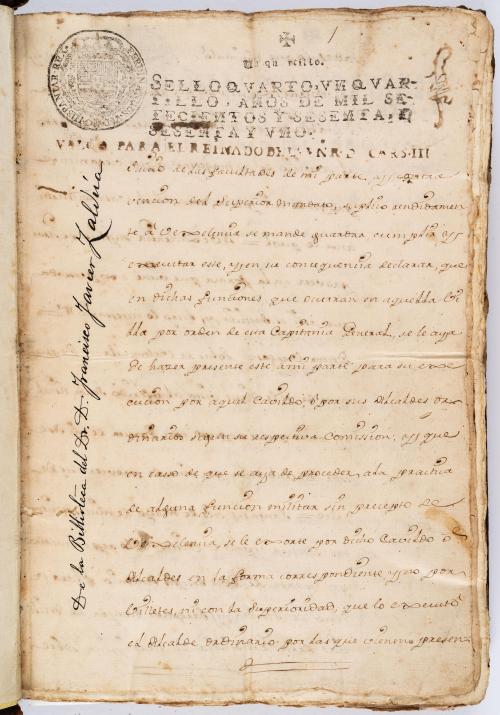 1
Un quartillo.
SELLO QVARTO, VN QVAR-
TILLO, AÑOS DE MIL SE-
TECIENTOS Y SESENTA, Y
SESENTA Y VNO.
VALGA PARA EL REINADO DE S. D. CARS. III
de las facultades de mi parte, y
vencion del Superior mandato, suplico rendidamen
te à V Excelencia se mande guardar, cumplir, y
executar este, y en su consequencia declarar, que
en dichas funciones que ocurran en aquella Vi
lla por orden de esta Capitania General, se le aya
de hazer presente este à mi parte para su exe
cucion por aquel Cavildo, ò por sus Alcaldes or
dinarios segun su respectiva Comission, y que
en caso de que se aya de proceder à la practica
de alguna funcion militar sin precepto de
V Excelencia, se le exorte por dicho Cavildo ò
Alcaldes en la forma correspondiente y no por
Corchetes, ni con la Superioridad, que lo executò
el Alcalde ordinario por las que vienen presen
De la Biblioteca del Dr. D. Francisco Javier Zaldúa